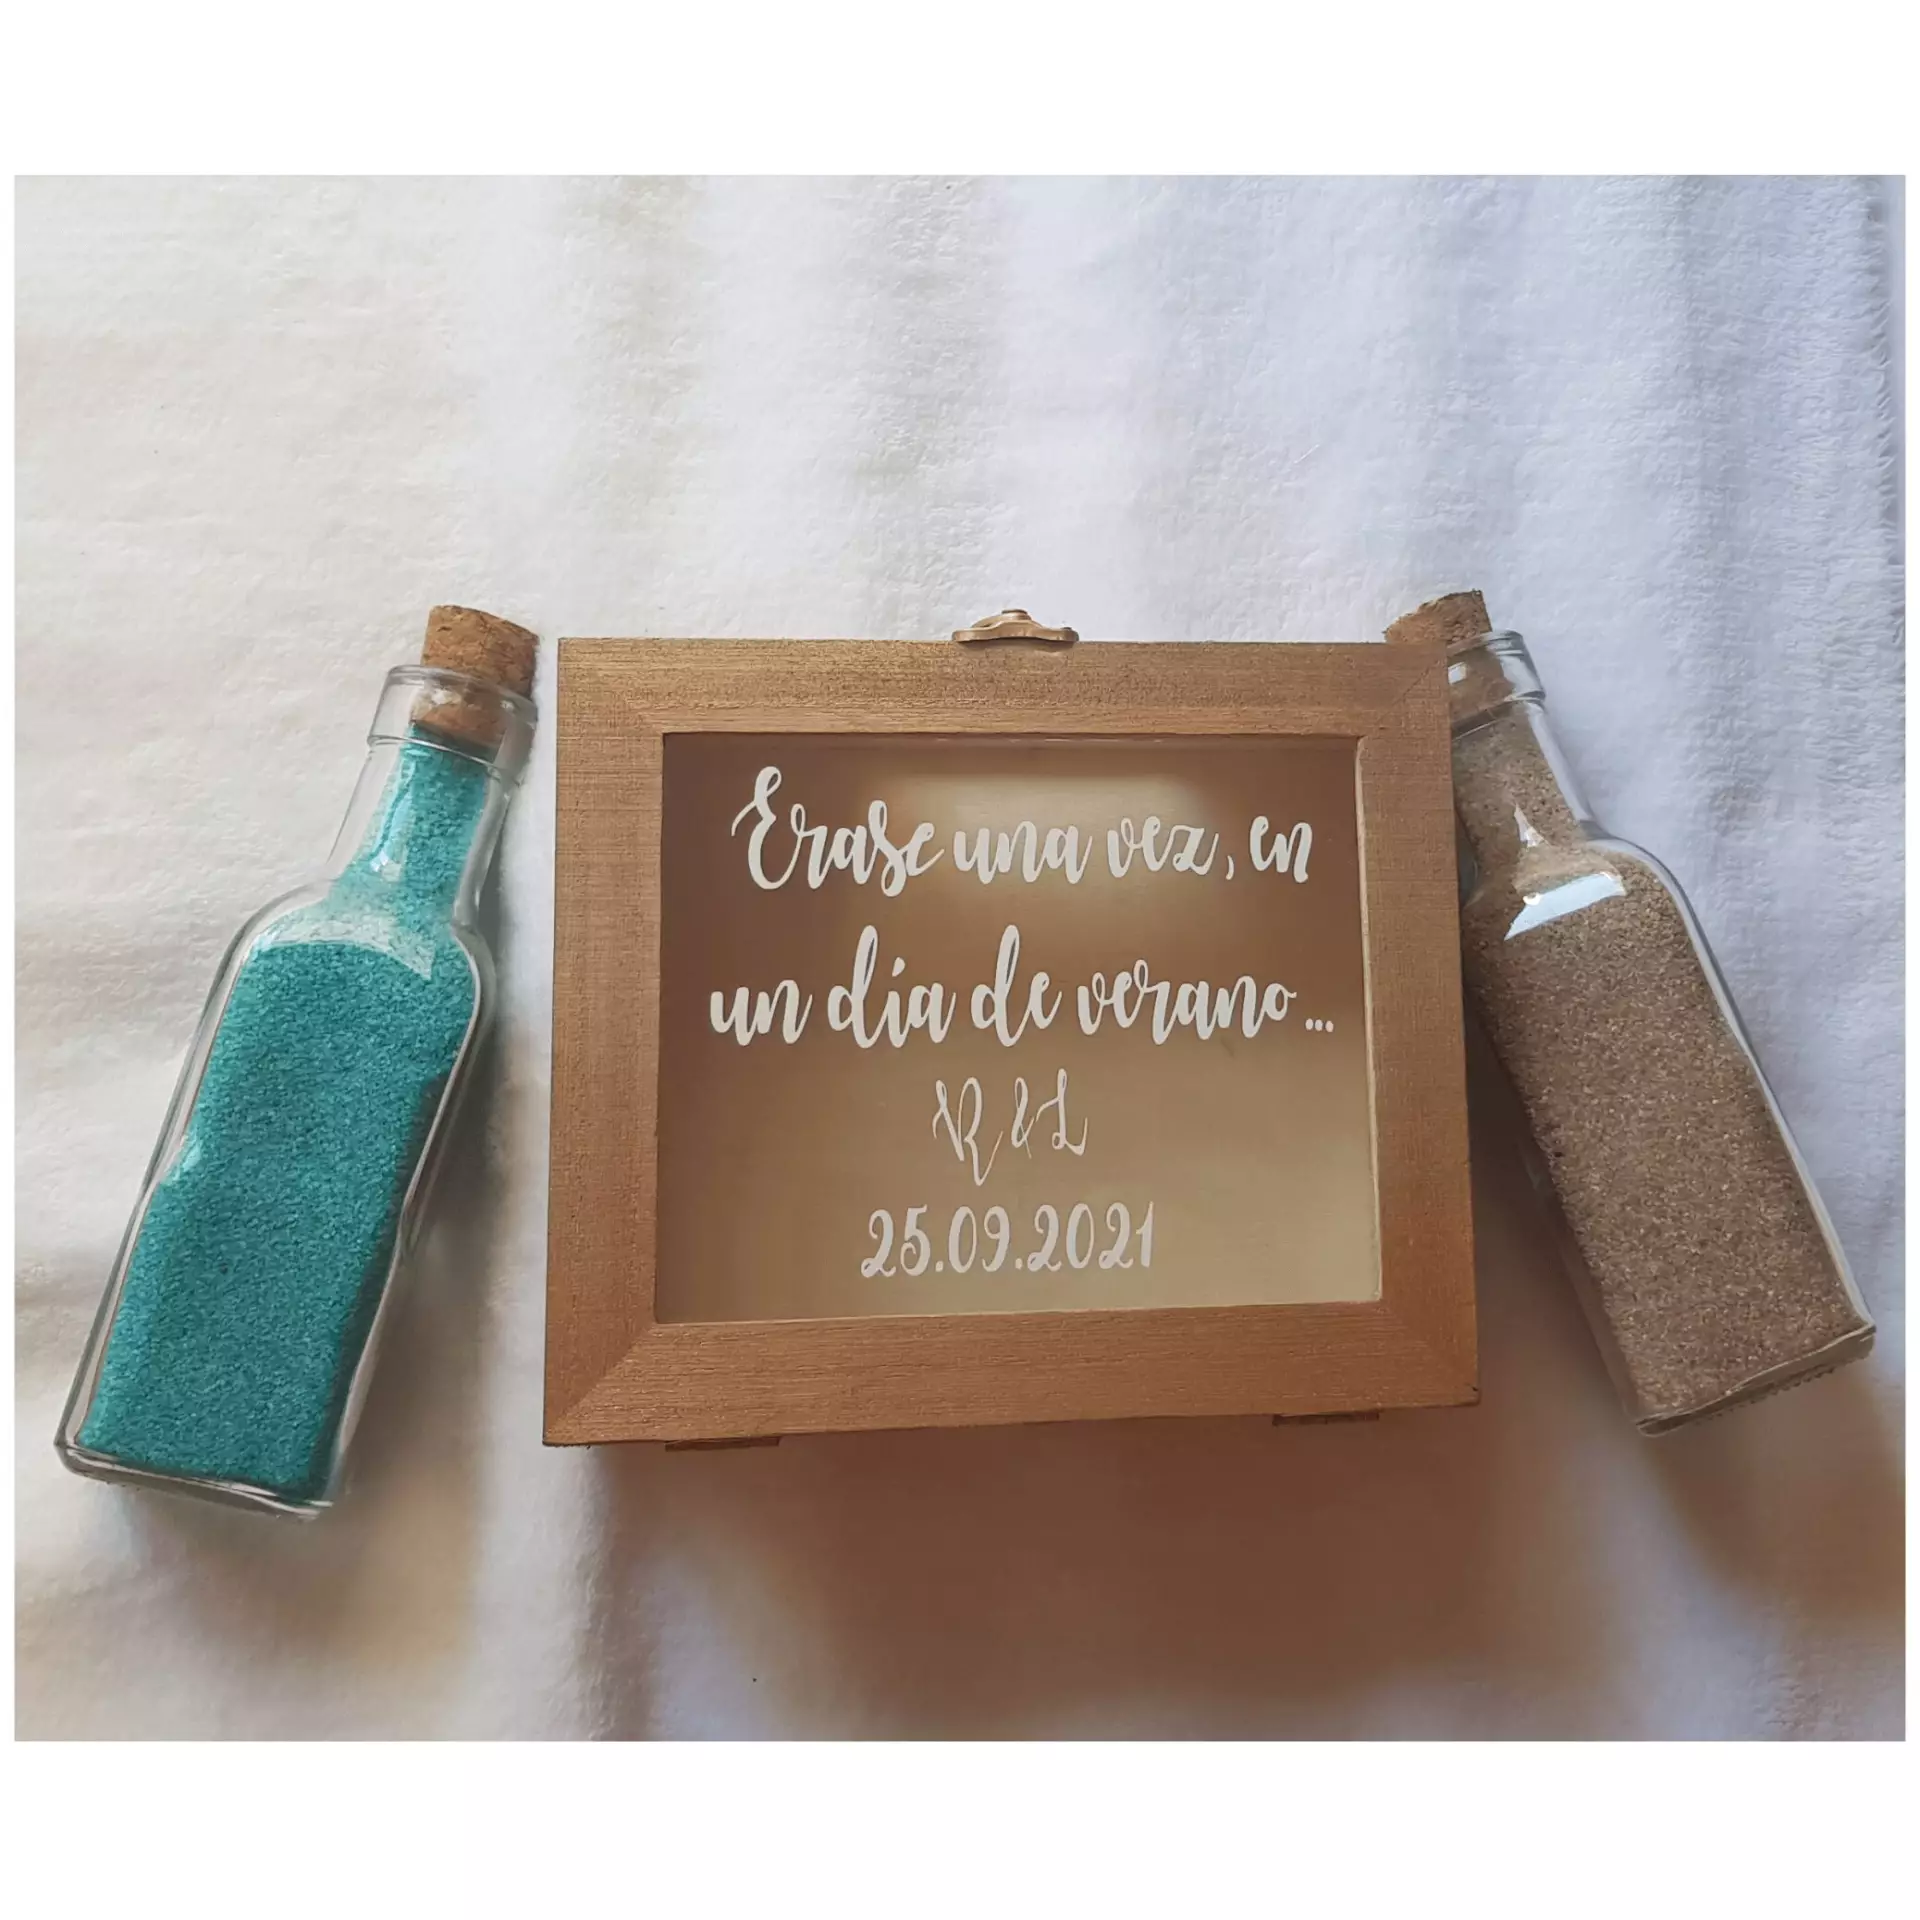 Erase una vez, en
un día de verano...
R & L
25.09.2021